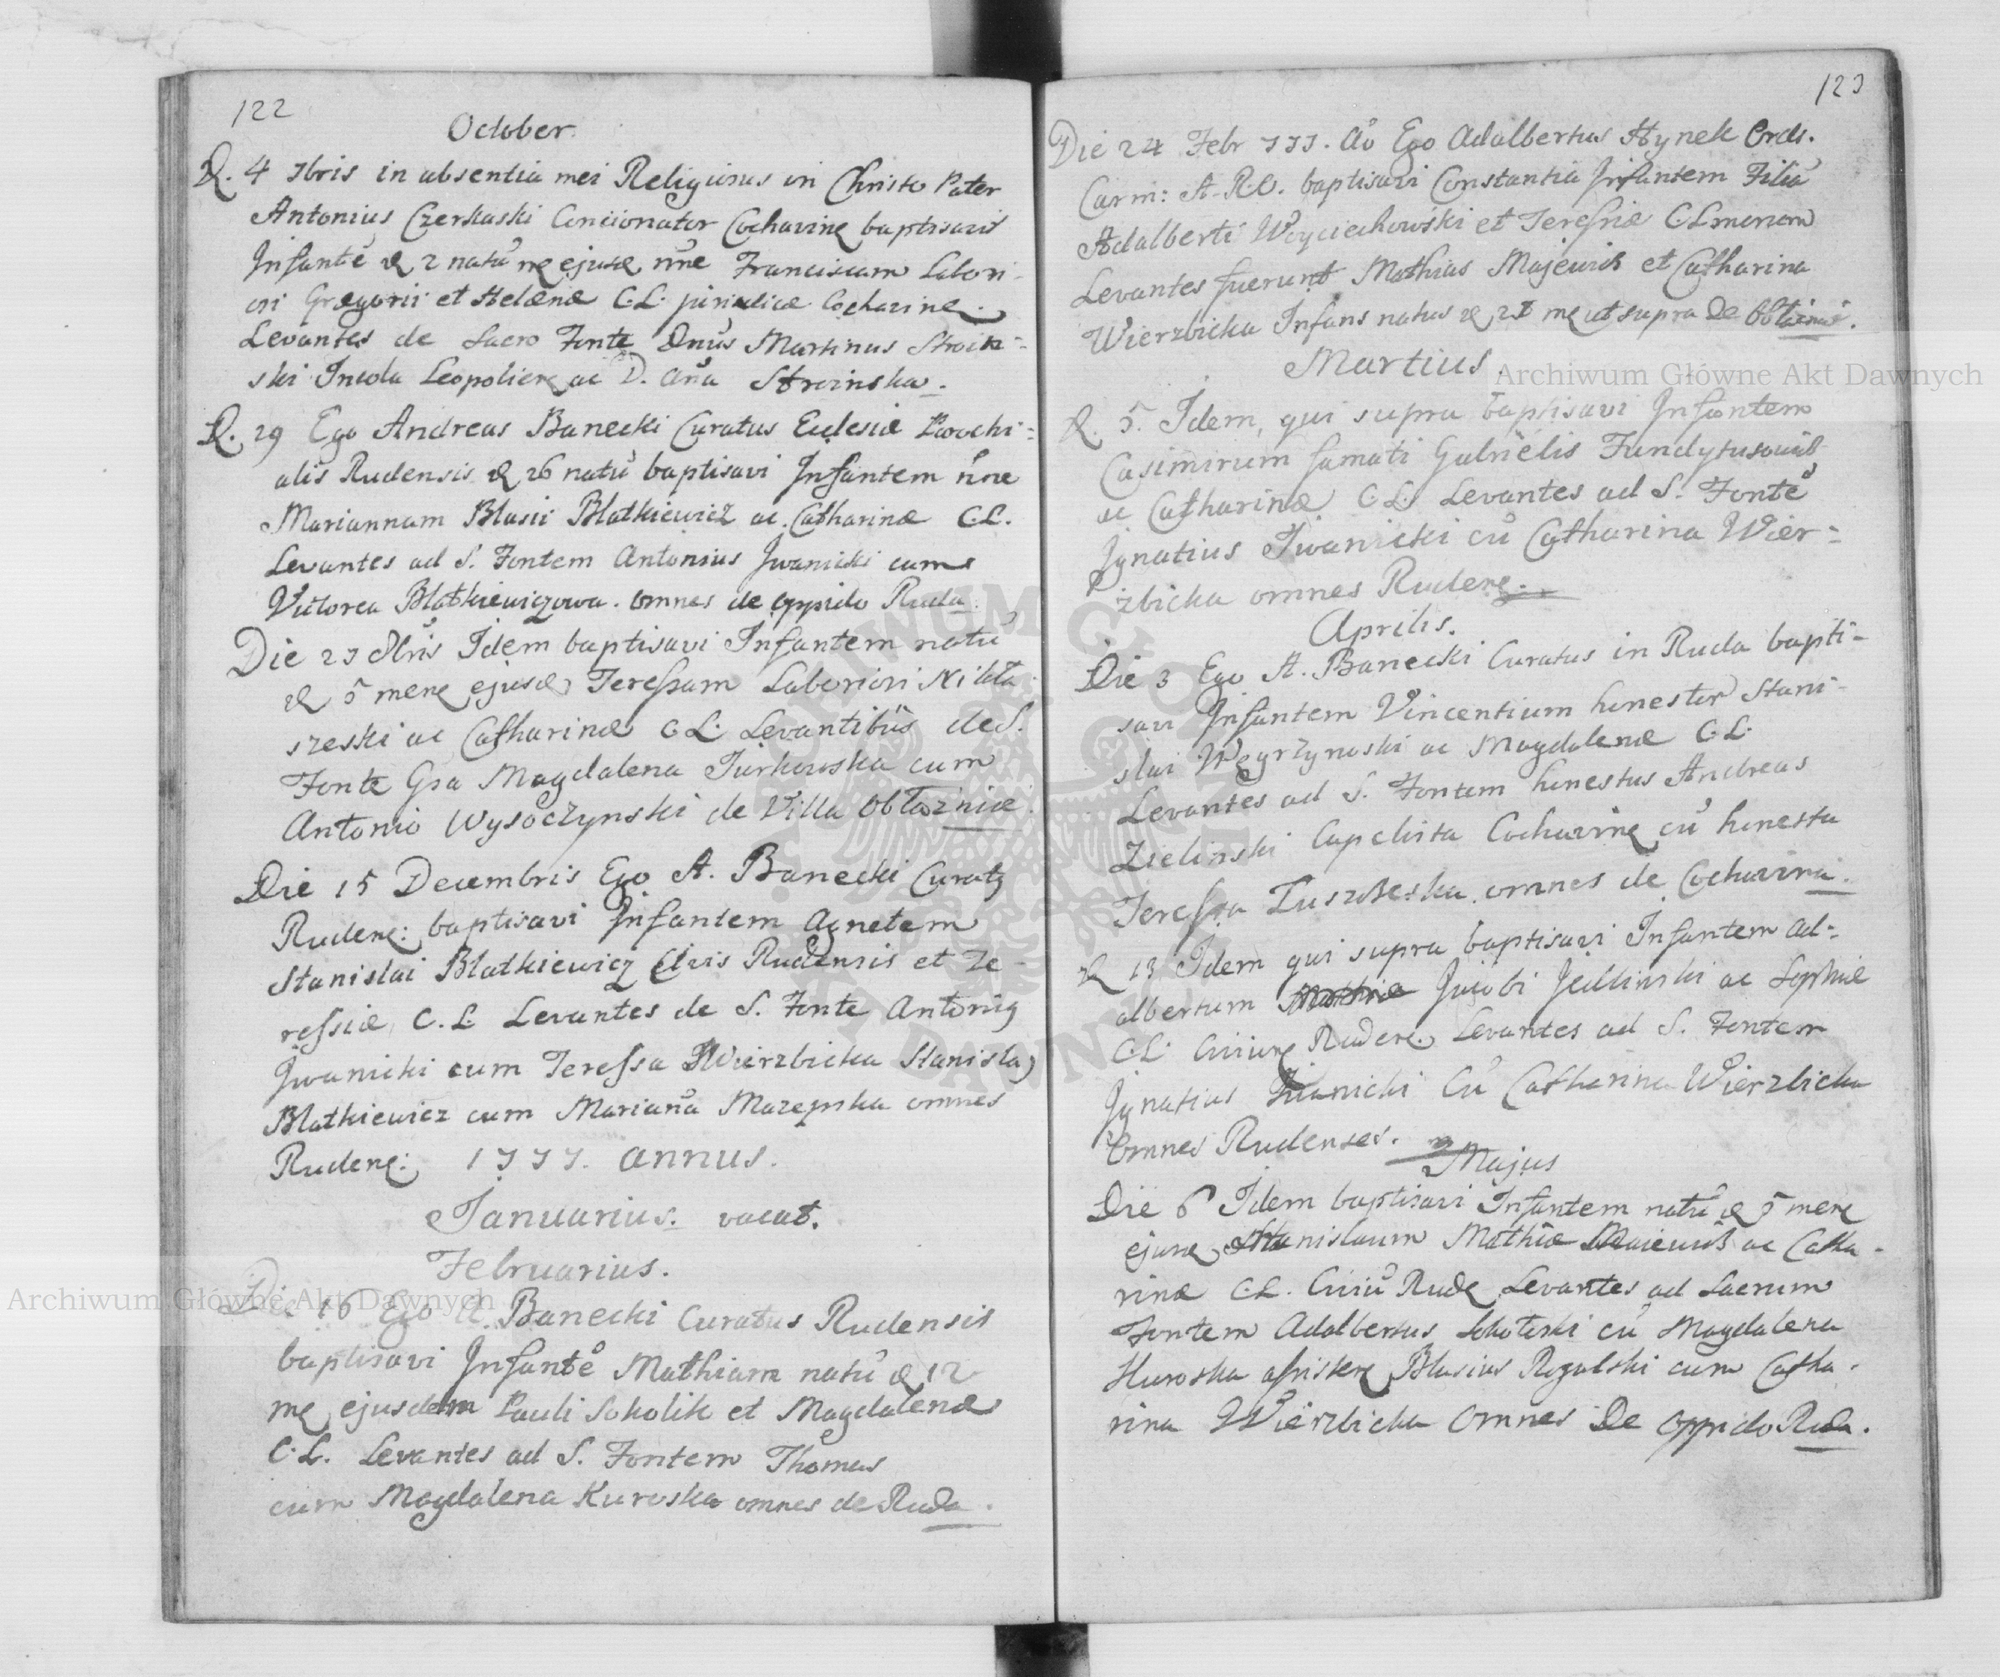 122
October
D. 4 7bris in absentia mei Religiosus in Christo Pater
Antonius Czerkaski Concionator Cochavine baptisavit
Infantē d 2 natū ejusd nōe Franciscum Labori
osi Gregorii et Helenæ C.L. Cochavine.
Levantes de Sacro Fonte Dnus Martinus Stroin=
ski Incola Leopolien ac D. Anā Stroinska.
D. 29 Ego Andreas Banecki Curatus Eclesiæ Parochi=
alis Rudensis d 26 natū baptisavi Infantem nōe
Mariannam Blasii Blatkiewicz ac Catharinæ C.L.
Levantes ad S. Fontem Antonius Jwanicki cum
Victorea Blatkiewiczowa. omnes de oppido Ruda.
Die 27 Idem baptisavi Infantem natū
d 5 mene ejusd Teressam Laboriosi Nikła
szeski ac Catharinæ C L. Levantibus de S.
Fonte Gsa Magdalena Jurkowska cum
Antonio Wysoczynski de Villa Obłaznicæ.
Die 15 Decembris Ego A. Banecki Curatq
Rudene: baptisavi Infantem Agnetem
Stanislai Blatkiewicz Civis Rudensis et Te-
ressiæ C.L. Levantes de S. Fonte Antoniq
Jwanicki cum Teressa Wierzbicka Stanisla
Blatkiewicz cum Mariaña Mazepska omnes
Rudene: 1777. annus.
Januarius. vacat.
Februarius.
Die 16 Ego A. Banecki Curatus Rudensis
baptisavi Infantē Mathiam natū d 12
me ejusdem Pauli Sokolik et Magdalenæ
C.L. Levantes ad S. Fontem Thomas
cum Magdalena Kuroska omnes de Ruda.
123
Die 24 Febr 777. Aō Ego Adalbertus Hynek Ords.
Carm: A. R.O. baptisavi Constantia Infantem Filiā
Adalberti Woyciechowski et Teressiæ C L
Levantes fuerunt Mathias Majewicz et Catharina
Wierzbicka Infans natus d 21 me ut supra De Obłaznica.
Martius
D. 5. Idem, qui supra baptisavi Infantem
Casimirum famati Gabrielis
ac Catharinæ C L. Levantes ad S. Fontē
Ignatius Iwanicki cū Catharina Wier=
zbicka omnes Rudene.
Aprilis.
Die 3 Ego A. Banecki Curatus in Ruda bapti-
savi Infantem Vincentium honestor Stani-
slai Węgrzynoski ac Magdalenæ C.L.
Levantes ad S. Fontem honestus Andreas
Zielinski Cochavine cū honesta
Teressa omnes de Cochavina.
D 13 Idem qui supra baptisavi Infantem Ad=
albertum Jacobi Jedlinski ac Sophiæ
C.L. Civiune Rudene. Levantes ad S. Fontem
Ignatius Iwanicki Cū Catharina Wierzbicka
Omnes Rudenses.
Majus
Die 6 Idem baptisavi Infantem natū d 5 mene
ejune Stanislaum Mathiæ Maiewicz ac Catha-
rinæ C.L. Civiū Rude Levantes ad Sacrum
Fontem Adalbertus Sokołoski cū Magdalena
Kuroska assistene Blasius Rogalski cum Catha-
rina Wierzbicka Omnes De Oppido Ruda.
Archiwum Główne Akt Dawnych
Archiwum Główne Akt Dawnych